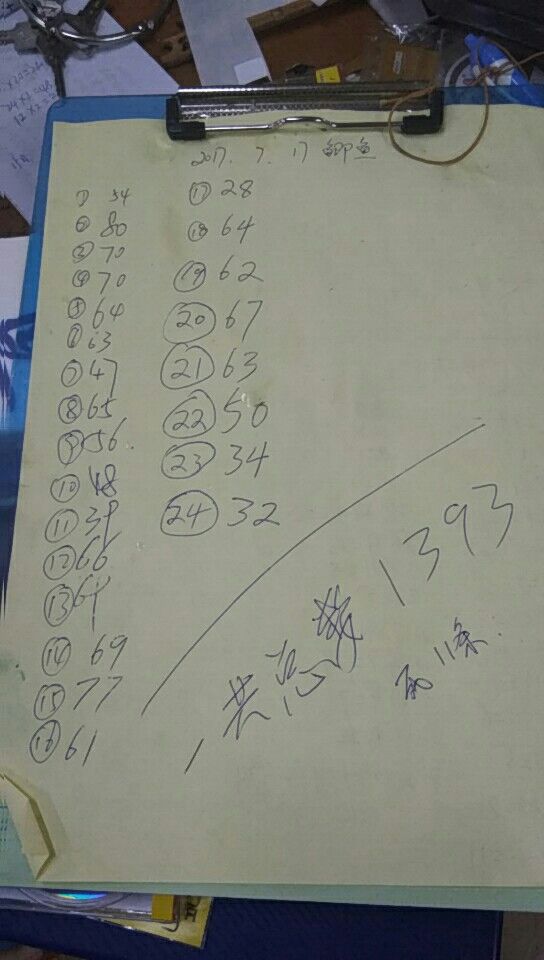 2017. 7. 17 鲫鱼
① 54
② 80
③ 70
④ 70
⑤ 64
⑥ 63
⑦ 47
⑧ 65
⑨ 56
⑩ 48
⑪ 39
⑫ 66
⑬ 64
⑭ 69
⑮ 77
⑯ 61
⑰ 28
⑱ 64
⑲ 62
⑳ 67
㉑ 63
㉒ 50
㉓ 34
㉔ 32
共总数 1393
11条.